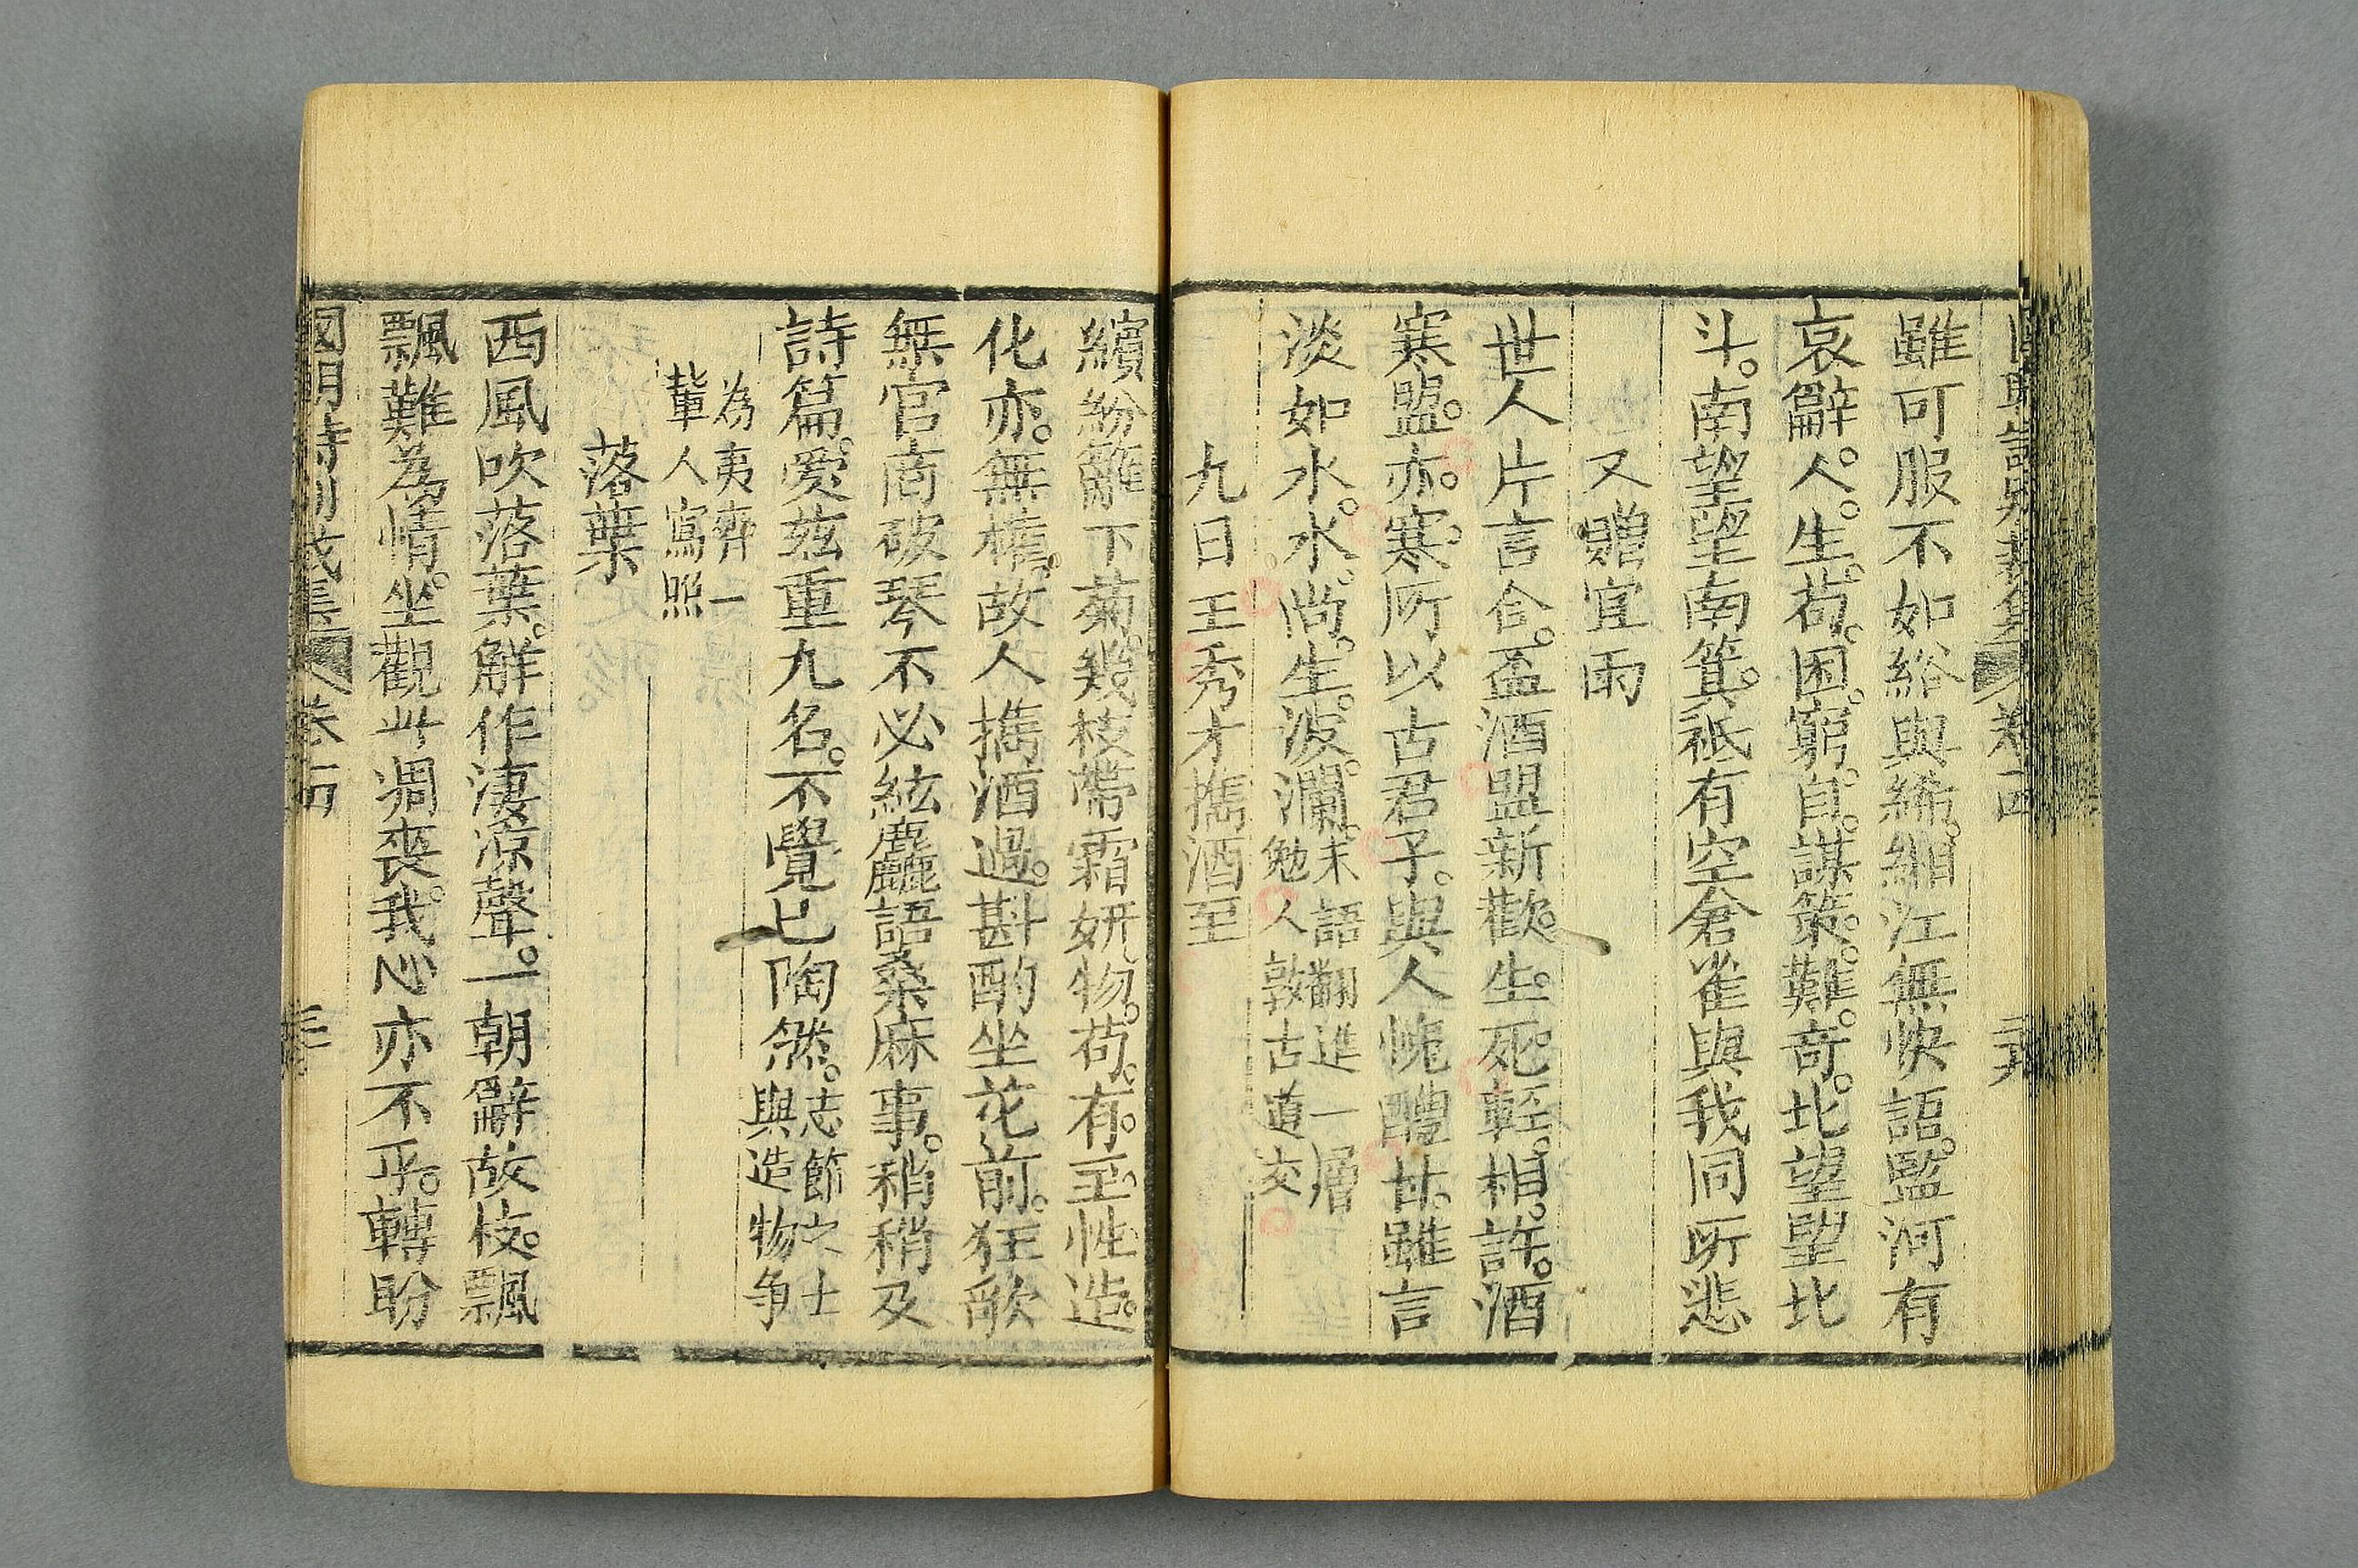 雖可服不如綌與絺緗江無快語監河有
哀辭人生苟困窮自謀策難奇北望望北
斗南望望南箕祇有空倉雀與我同所悲
又贈宜雨
世人片言合盃酒盟新歡生死輕相許酒
寒盟亦寒所以古君子與人愧醴甘雖言
淡如水水尚生波瀾末語翻進一層
勉人敦古道交
九日王秀才攜酒至
繽紛籬下菊幾枝帶霜妍物苟有至性造
化亦無權故人攜酒過斟酌坐花前狂歌
無官商破琴不必絃麤語桑麻事稍稍及
詩篇愛茲重九名不覺已陶然志節之士
與造物爭
為夷齊一
輩人寫照
落葉
西風吹落葉解作淒涼聲一朝辭故枝飄
飄難為情坐觀此凋喪我心亦不平轉盼